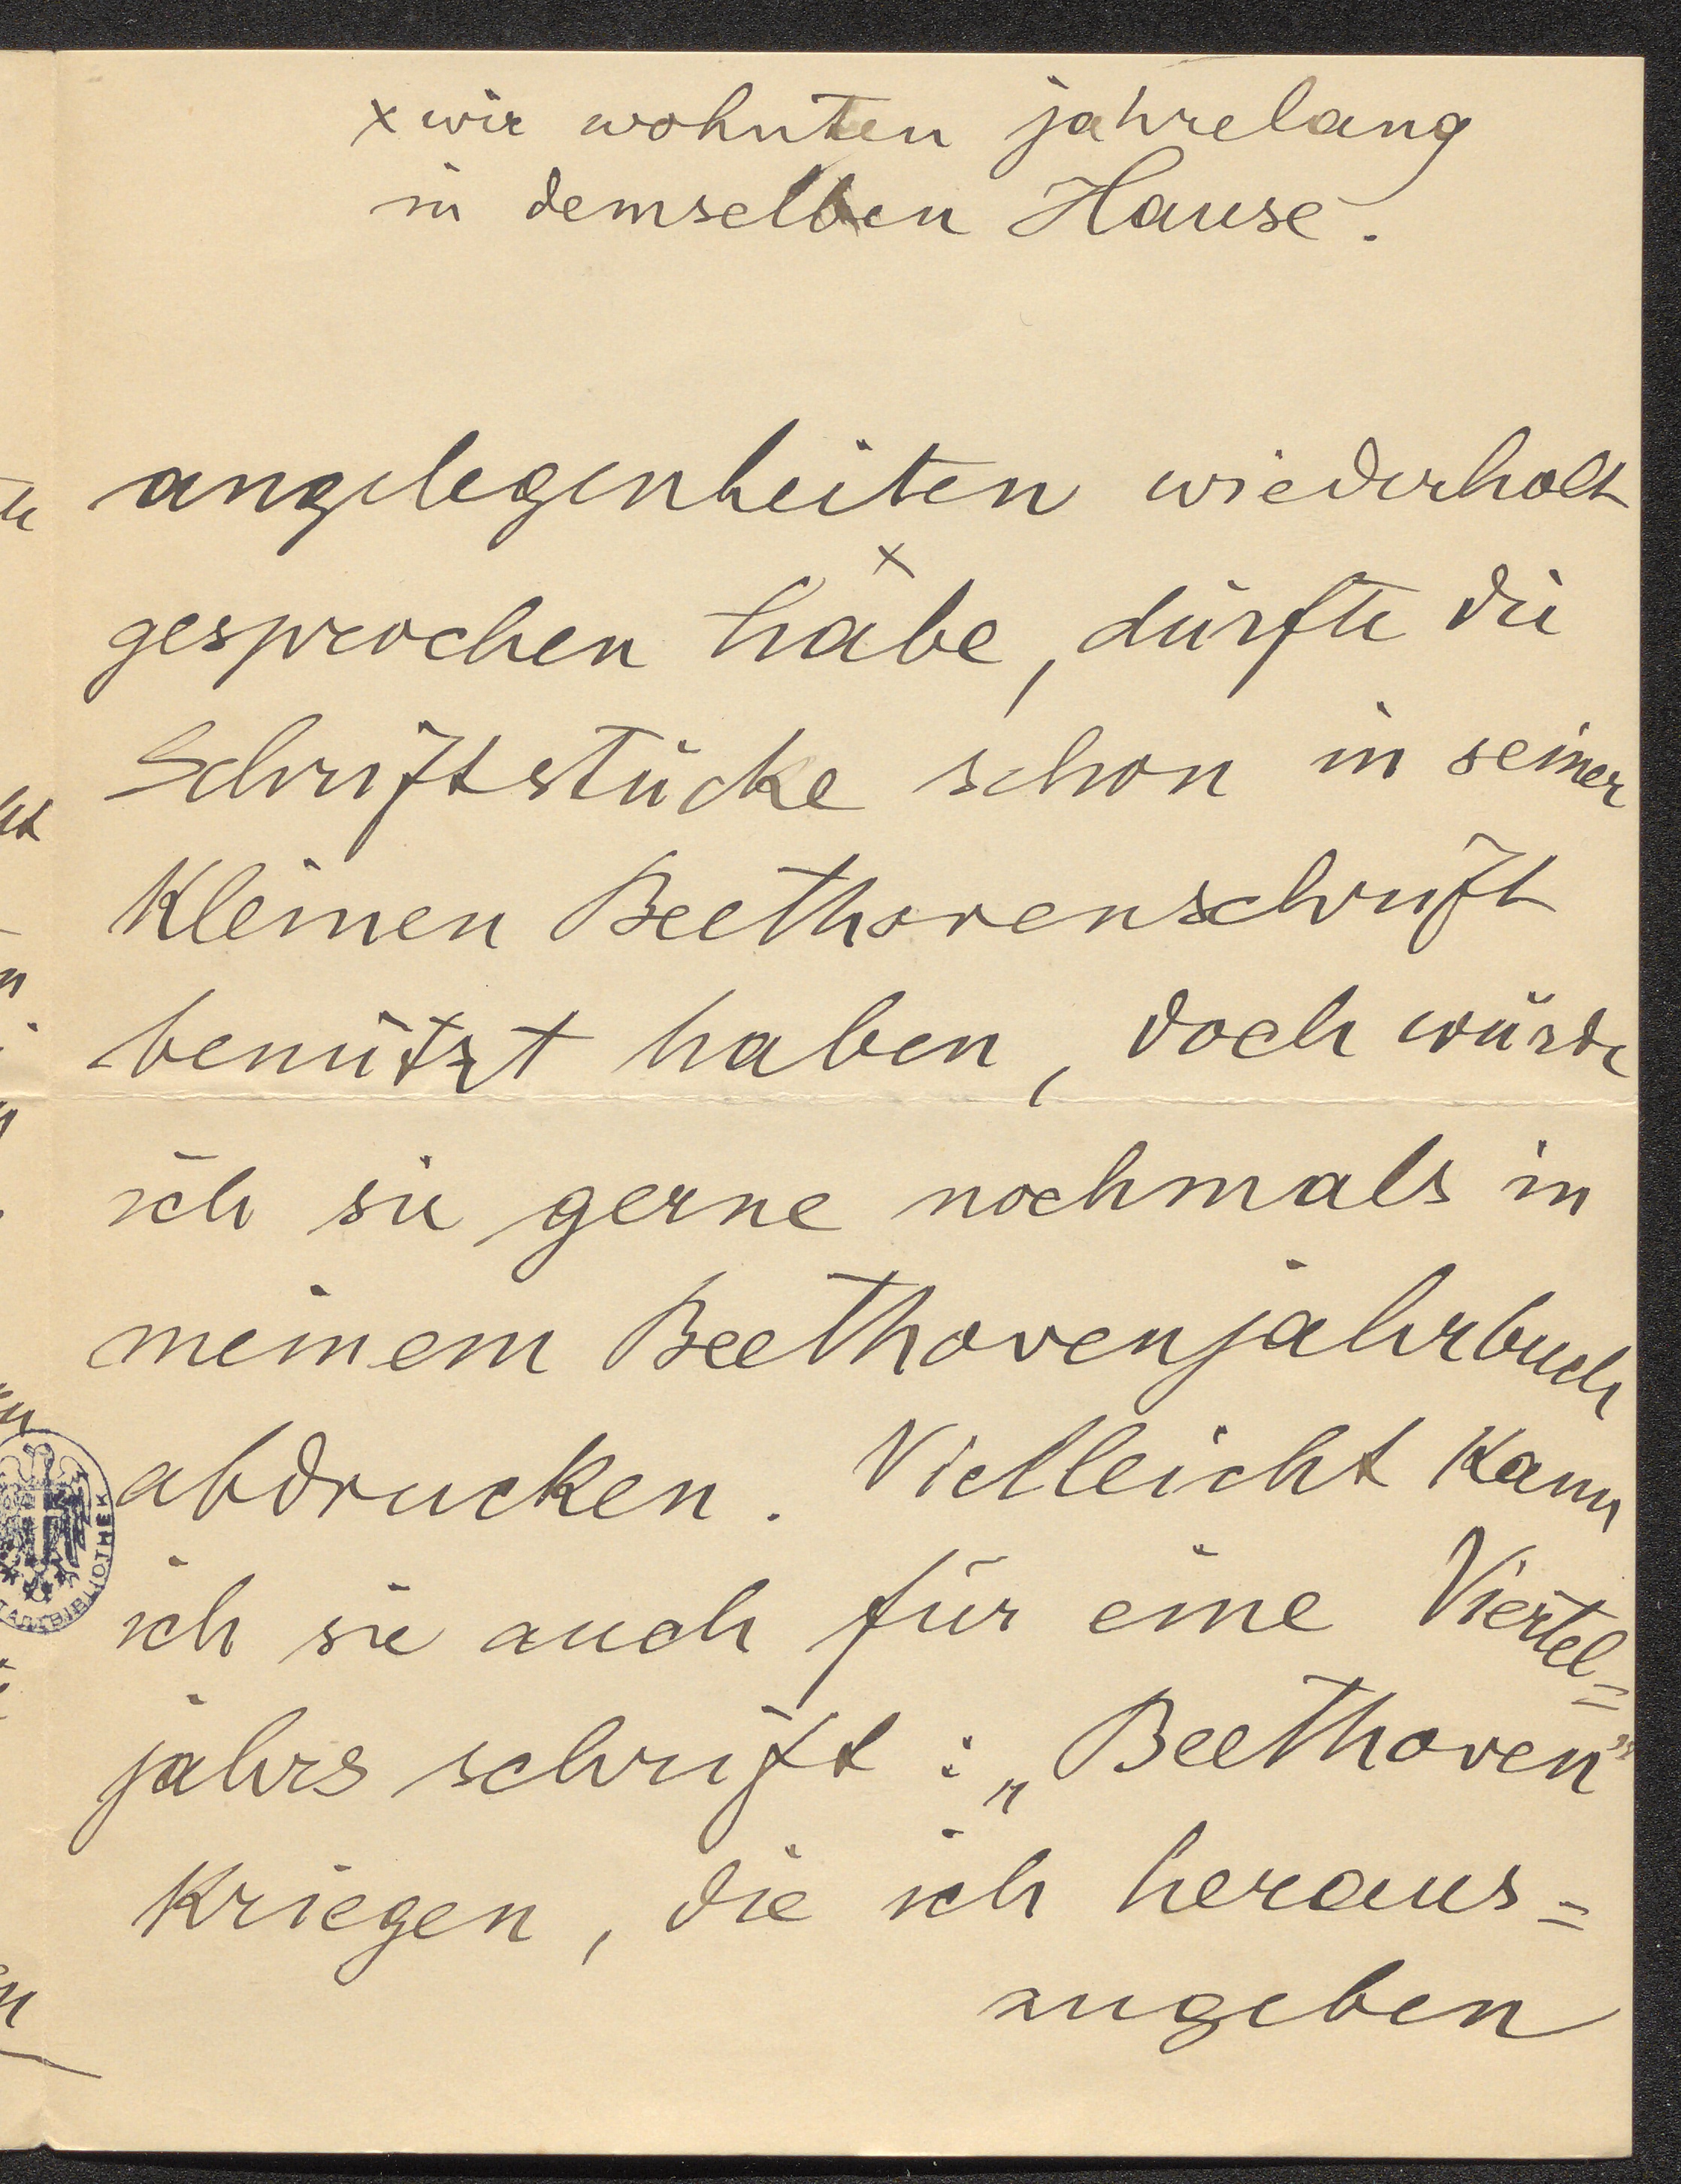 x wir wohnten jahrelang
in demselben Hause.
angelegenheiten wiederholt
x
gesprochen habe, dürfte die
Schriftstücke schon in seiner
kleinen Beethovenschrift
benützt haben, doch würde
ich sie gerne nochmals in
meinem Beethovenjahrbuch
abdrucken. Vielleicht kann
ich sie auch für eine Viertel=
jahrsschrift: „Beethoven"
kriegen, die ich heraus=
zugeben